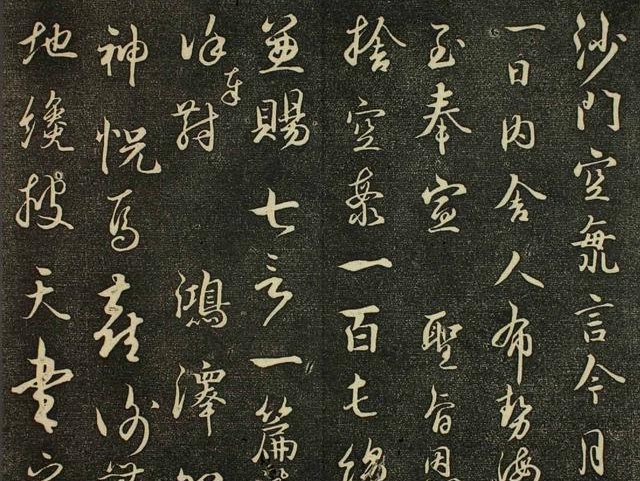 沙門空海言今月
一日內舍人布勢海
至奉宣 聖旨因
捨空海一百屯綿
兼賜七言一篇
奉對 鴻澤
神怳焉喜
地纔披天書